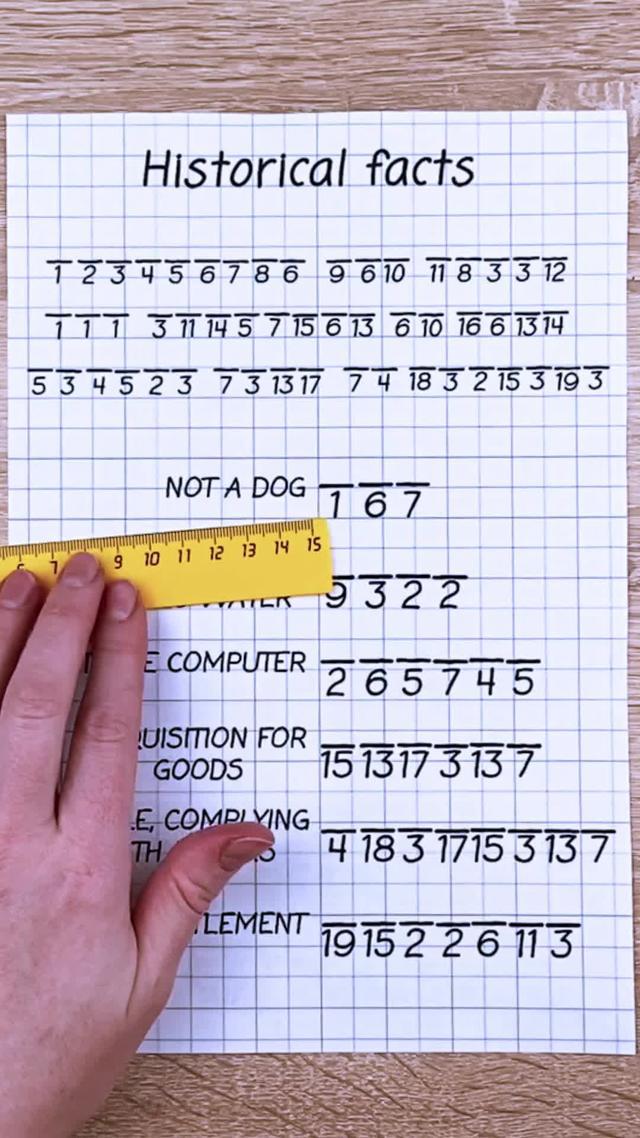 Historical facts
1 2 3 4 5 6 7 8 6 9 6 10 11 8 3 3 12
1 1 1 3 11 14 5 7 15 6 13 6 10 16 6 13 14
5 3 4 5 2 3 7 3 13 17 7 4 18 3 2 15 3 19 3
NOT A DOG 1 6 7
7 9 10 11 12 13 14 15
9 3 2 2
COMPUTER 2 6 5 7 4 5
FOR
GOODS 15 13 17 3 13 7
COMPLYING
4 18 3 17 15 3 13 7
19 15 2 2 6 11 3